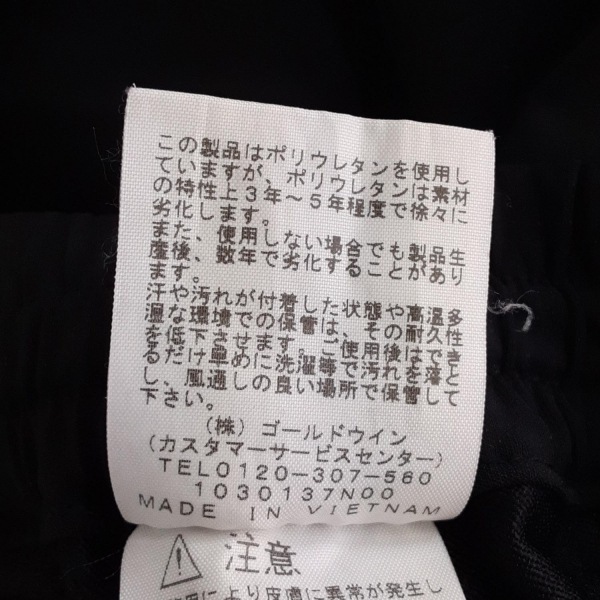 この製品はポリウレタンを使用し
ていますが、ポリウレタンは素材
の特性上3年～5年程度で徐々に
劣化します。
また、使用しない場合でも製品生
産後、数年で劣化することがあり
ます。
汗や汚れが付着した状態や高温多
湿な環境での保管は、その耐久性
を低下させます。ご使用後はできと
るだけ早めに洗濯等で汚れを落して
し、風通しの良い場所で保管して
下さい。
(株)ゴールドウイン
(カスタマーサービスセンター)
TEL0120-307-560
1030137N00
MADE IN VIETNAM
注意
使用により皮膚に異常が発生し